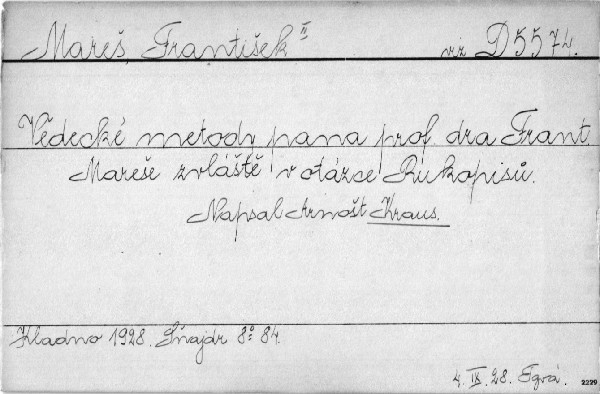 Mareš, František II
viz D 5574.
Vědecké metody pana prof. dra Frant.
Mareše zvláště v otázce Rukopisů.
Napsal Arnošt Kraus.
Kladno 1928. Šnajdr 8° 84.
4. IX. 28.
2229